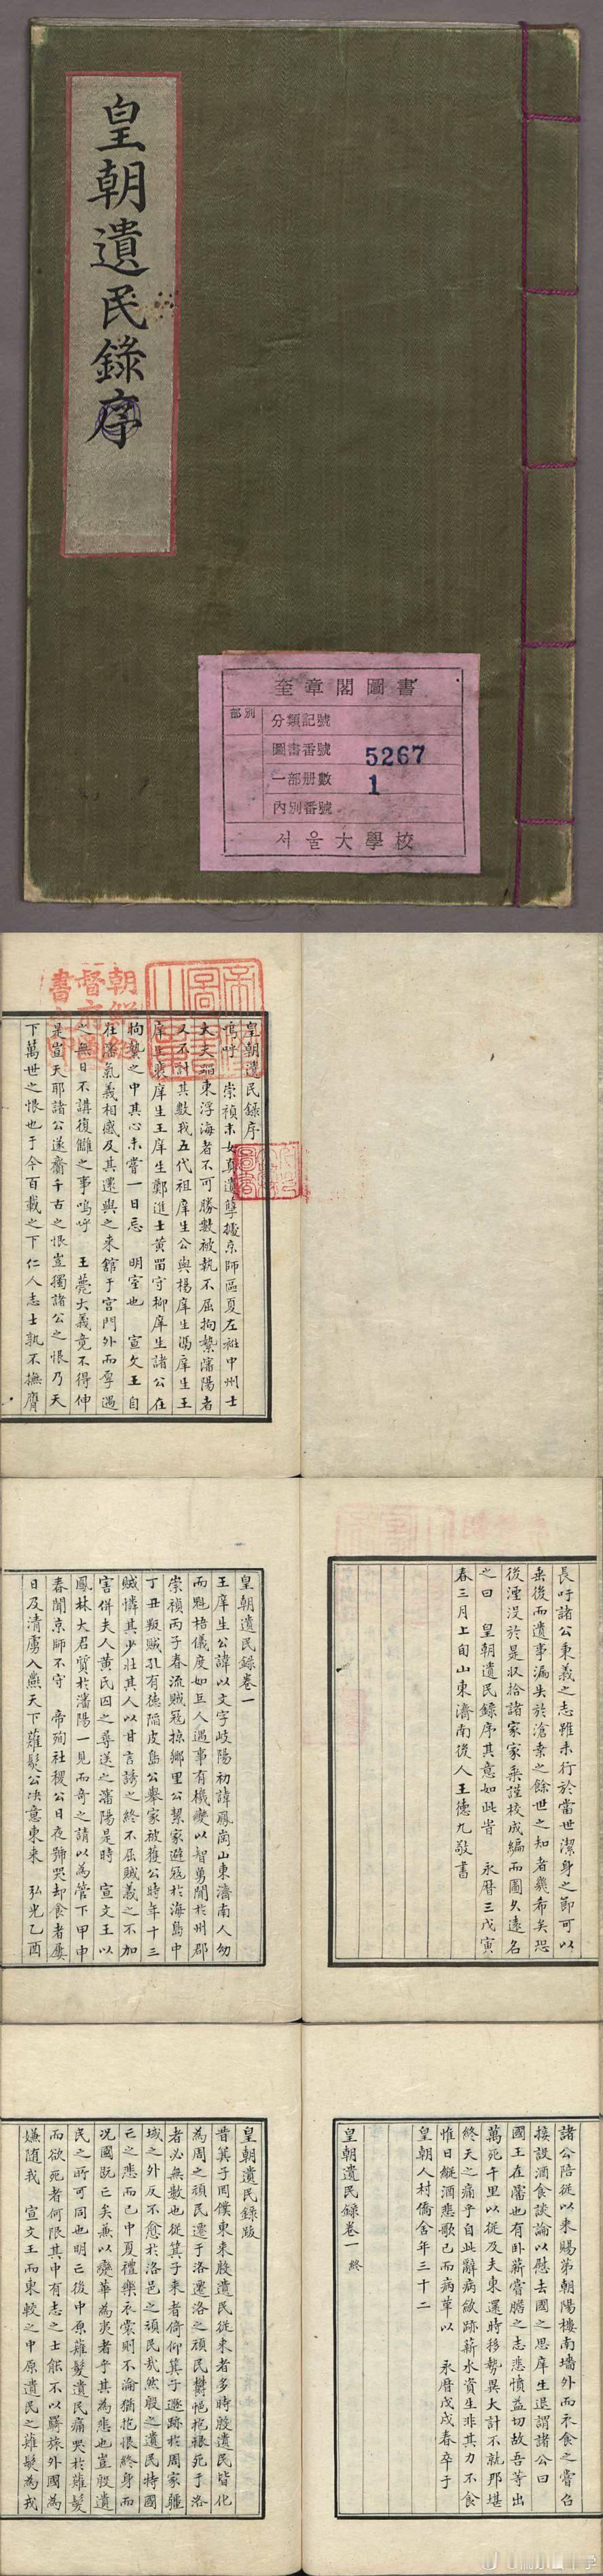 皇朝遺民錄序
奎章閣圖書
部別
分類記號
圖書番號 5267
一部册數 1
內別番號
서울大學校
皇朝遺民錄序
嗚呼 崇禎末女真遺孽據京師區夏左袵中州士
大夫蹈東浮海者不可勝數被執不屈拘縶瀋陽者
又不計其數我五代祖庠生公與楊庠生馮庠生王
庠生裵庠生王庠生鄭進士黃留守柳庠生諸公在
拘縶之中其心未嘗一日忘 明室也 宣文王自
在瀋氣義相感及其還與之來館于宮門外而厚遇
之無日不講復讎之事嗚呼 王薨大義竟不得伸
是豈天耶諸公遂齎千古之恨豈獨諸公之恨乃天
下萬世之恨也于今百載之下仁人志士孰不撫膺
長吁諸公秉義之志雖未行於當世潔身之節可以
垂後而遺事漏失於滄桑之餘世之知者幾希矣恐
後湮沒於是収拾諸家家乘謹校成編而圖久遠名
之曰 皇朝遺民錄序其意如此肯 永曆三戊寅
春三月上旬山東濟南後人王德九敬書
皇朝遺民錄卷一
王庠生公諱以文字岐陽初諱鳳崗山東濟南人幼
而魁梧儀度如巨人遇事有機變以智勇聞於州郡
崇禎丙子春流賊寇掠鄉里公挈家避寇於海島中
丁丑叛賊孔有德陷皮島公擧家被獲公時年十三
賊憐其少壯其人以甘言誘之終不屈賊義之不加
害併夫人黃氏因之尋送之瀋陽是時 宣文王以
鳳林大君質於瀋陽一見而奇之請以為管下甲申
春聞京師不守 帝殉社稷公日夜號哭却食者屢
日及清虜入燕天下薙髮公決意東來 弘光乙酉
諸公陪從以來賜第朝陽樓南墻外而衣食之嘗召
接設酒食談論以慰去國之思庠生退謂諸公曰
國王在瀋也有卧薪嘗膽之志悲憤益切故吾等出
萬死千里以從及夫東還時移勢異大計不就那堪
終天之痛乎自此辭病斂跡薪水資生非其力不食
惟日縱酒悲歌已而病革以 永曆戊戌春卒于
皇朝人村僑舍年三十二
皇朝遺民錄卷一終
皇朝遺民錄跋
昔箕子罔僕東來殷遺民從來者多時殷遺民皆化
為周之頑民遷于洛遷洛之頑民鬱悒抱恨死于洛
者必無數也從箕子來者倚仰箕子遯跡於周家疆
域之外反不愈於洛邑之頑民哉然殷之遺民特國
亡之悲而已中夏禮樂衣裳則不淪猶抱恨終身而
況國既亡矣兼以變華為夷者乎其為悲也豈殷遺
民之所可同也明亡後中原薙髮遺民痛哭於薙髮
而欲死者何限其中有志之士能不以羈旅外國為
嫌隨我 宣文王而東較之中原遺民之薙髮為戎